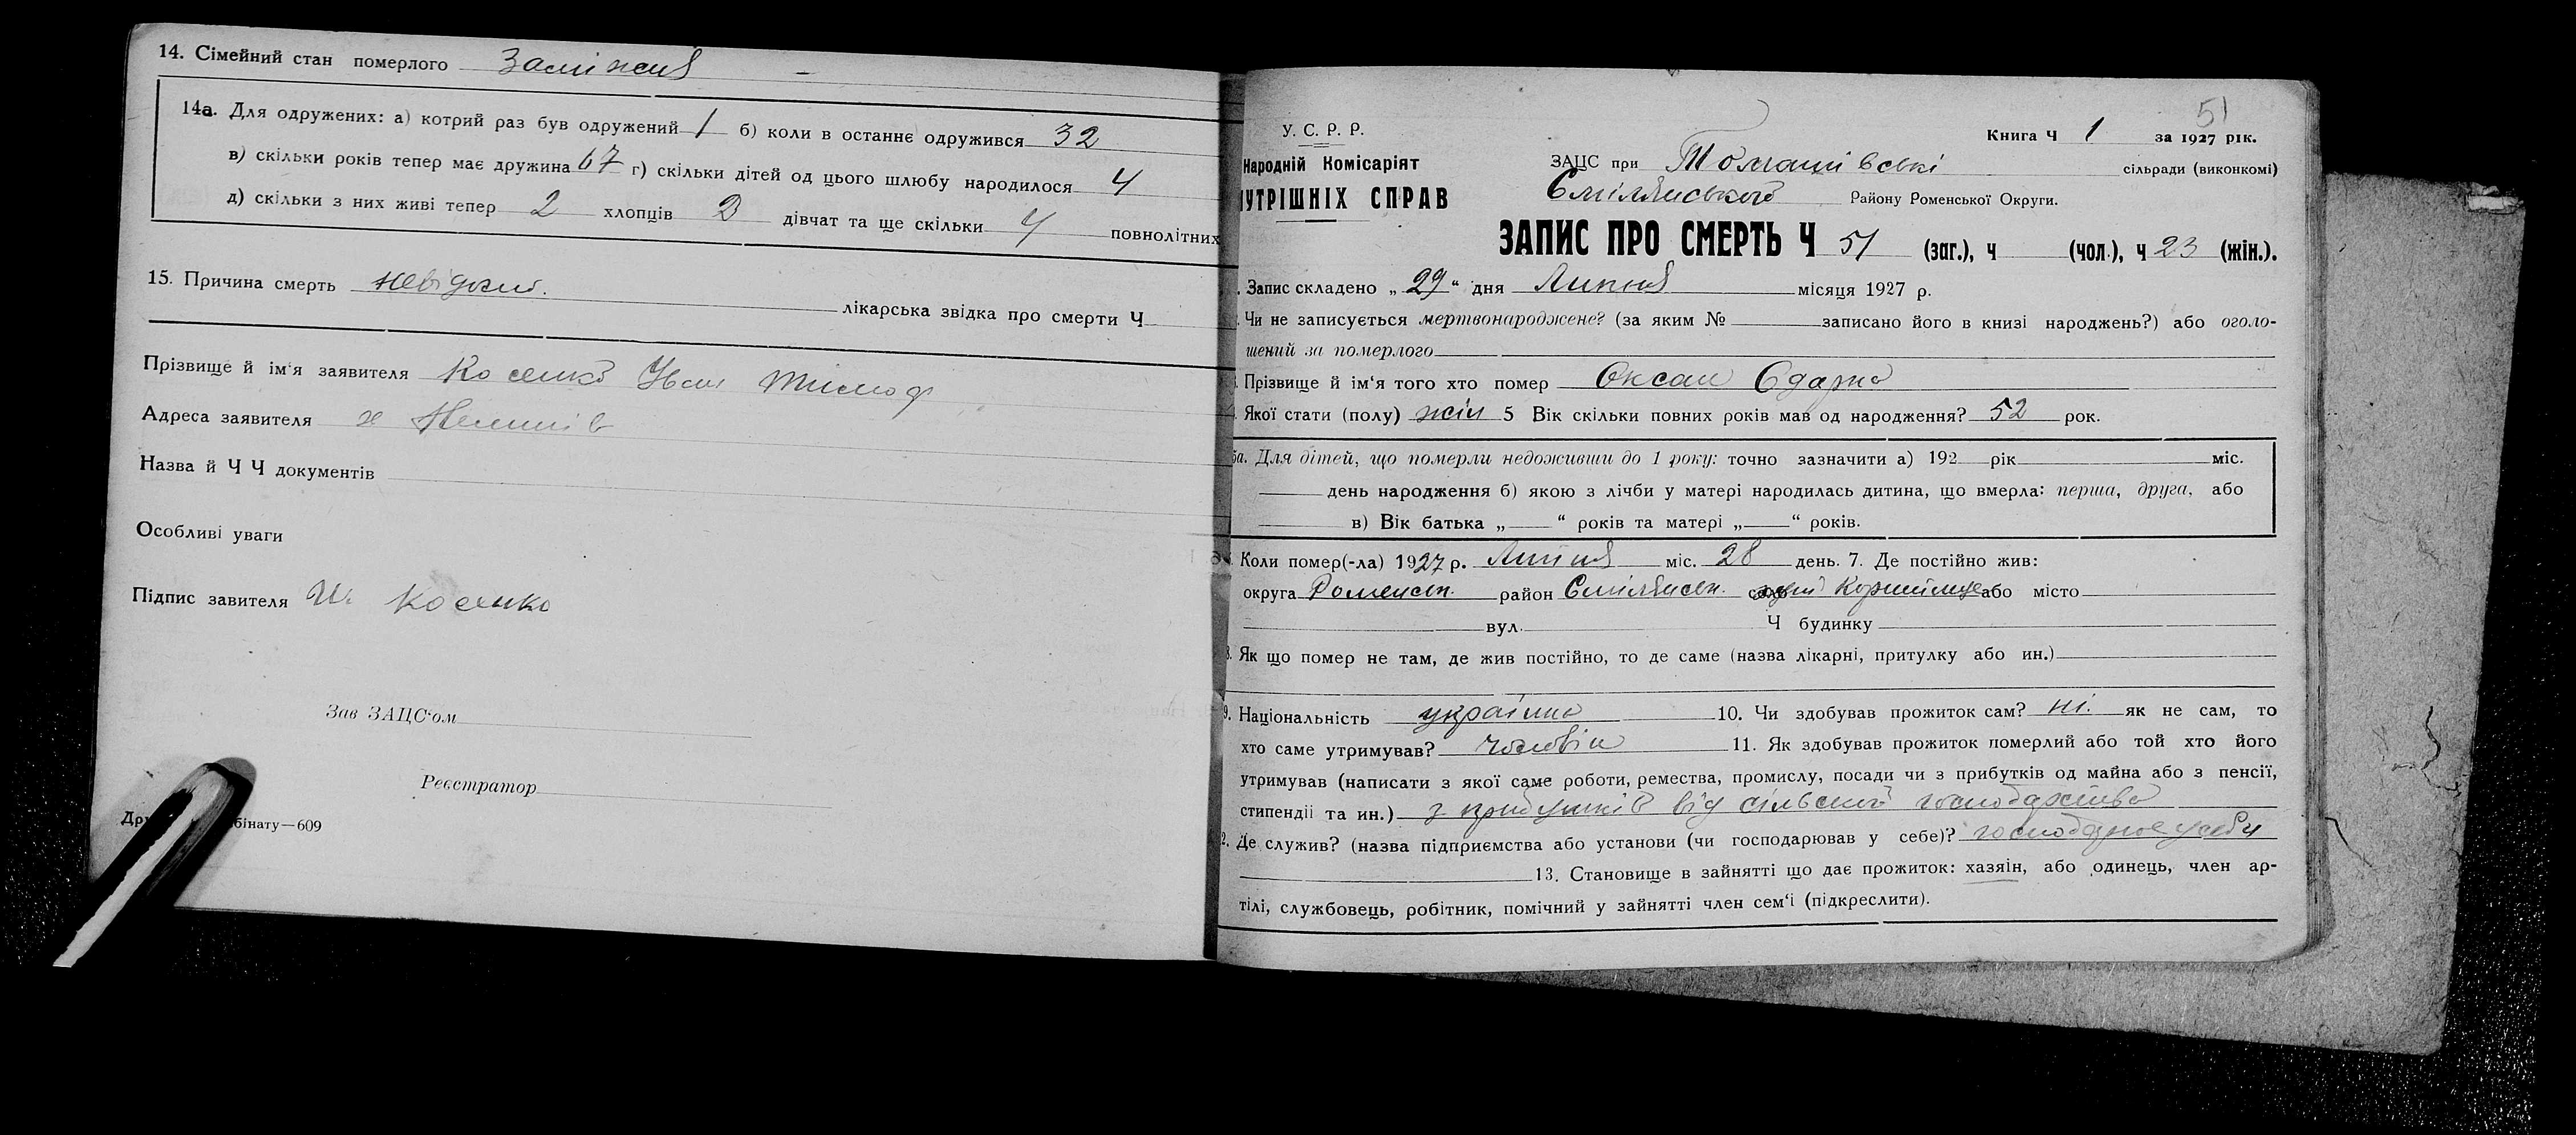 14. Сімейний стан померлого Заміжня
14а. Для одружених: а) котрий раз був одружений 1 б) коли в останнє одружився 32
в) скільки років тепер має дружина 67 г) скільки дітей од цього шлюбу народилося 4
д) скільки з них живі тепер 2 хлопців 2 дівчат та ще скільки 4 повнолітних
15. Причина смерть невідома.
лікарська звідка про смерти Ч
Прізвище й ім'я заявителя Косенко Іван Тимоф
Адреса заявителя х
Назва й Ч Ч документів
Особливі уваги
Підпис завителя Ів Косенко
Зав ЗАЦС'ом
Реєстратор
Дру бінату—609
51
У. С. Р. Р.
Книга Ч 1 за 1927 рік.
Народній Комісаріят
ЗАЦС при Томашівські сільради (виконкомі)
НУТРІШНІХ СПРАВ
Смілянського Району Роменської Округи.
ЗАПИС ПРО СМЕРТЬ Ч 51 (заг.), ч (чол.), ч 23 (жін.).
Запис складено „29" дня Липня місяця 1927 р.
Чи не записується мертвонароджене? (за яким № записано його в книзі народжень?) або оголо-
шений за померлого
Прізвище й ім'я того хто помер Оксан Одарка
Якої стати (полу) жін 5 Вік скільки повних років мав од народження? 52 рок.
5а. Для дітей, що померли недоживши до 1 року: точно зазначити а) 192 рік міс.
день народження б) якою з лічби у матері народилась дитина, що вмерла: перша, друга, або
в) Вік батька „ " років та матері „ " років.
Коли помер(-ла) 1927 р. Липня міс. 28 день. 7. Де постійно жив:
округа Роменськ. район Смілянськ. або місто
вул. Ч будинку
8. Як що помер не там, де жив постійно, то де саме (назва лікарні, притулку або ин.)
9. Національність українка 10. Чи здобував прожиток сам? ні. як не сам, то
хто саме утримував? чоловік 11. Як здобував прожиток померлий або той хто його
утримував (написати з якої саме роботи, ремества, промислу, посади чи з прибутків од майна або з пенсії,
стипендії та ин.) з прибутків від сільського господарства
2. Де служив? (назва підприємства або установи (чи господарював у себе)? господарює у себе
13. Становище в зайнятті що дає прожиток: хазяїн, або одинець, член ар-
тілі, службовець, робітник, помічний у зайнятті член сем'ї (підкреслити).